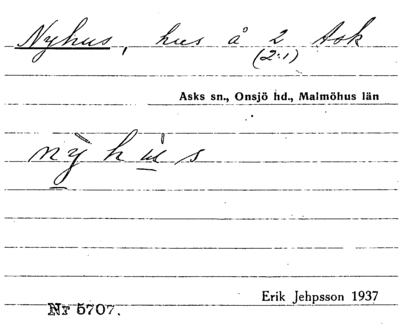 Nyhus, hus å 2 Ask
(2:1)
Asks sn., Onsjö hd., Malmöhus län
nỳhùs
Erik Jehpsson 1937
Nr 5707.